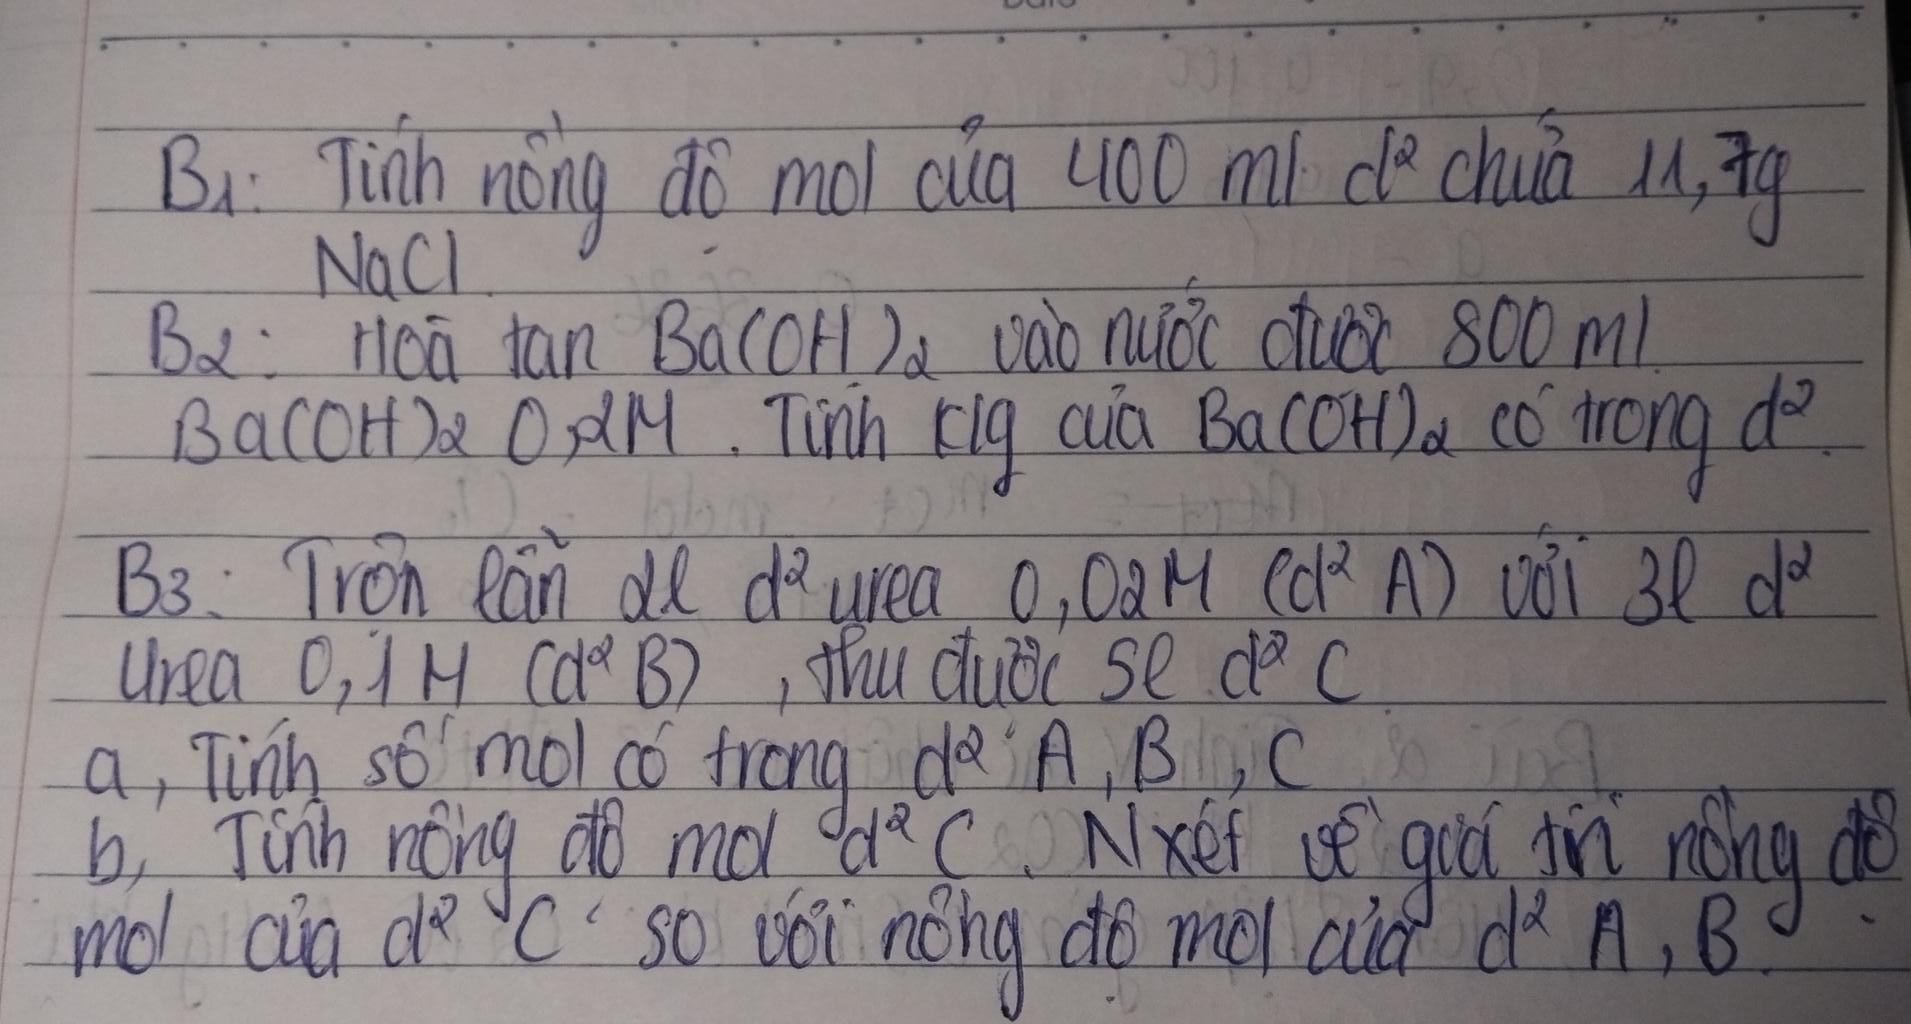 B1: Tính nồng độ mol của 400 ml d² chứa 11,7g
NaCl.
B2: Hoà tan Ba(OH)2 vào nước được 800 ml
Ba(OH)2 0,2M. Tính klg của Ba(OH)2 có trong d².
B3: Trộn lẫn 2l d² urea 0,02M (d² A) với 3l d²
urea 0,1M (d² B), thu được 5l d² C
a, Tính số mol có trong d² A, B, C
b, Tính nồng độ mol d² C. Nxét về giá trị nồng độ
mol của d² C so với nồng độ mol của d² A, B.